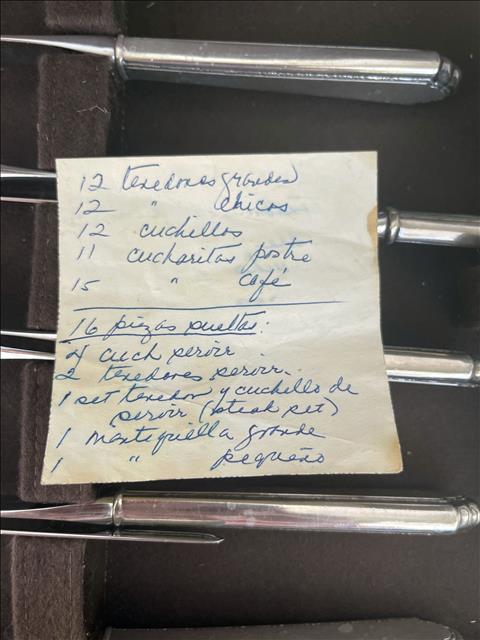 12 tenedores grandes
12 " chicos
12 cuchillos
11 cucharitas postre
15 " café
16 piezas sueltas:
4 cuch servir
2 tenedores servir.
1 set tenedor y cuchillo de
servir (steak set)
1 mantequilla grande
1 " pequeño